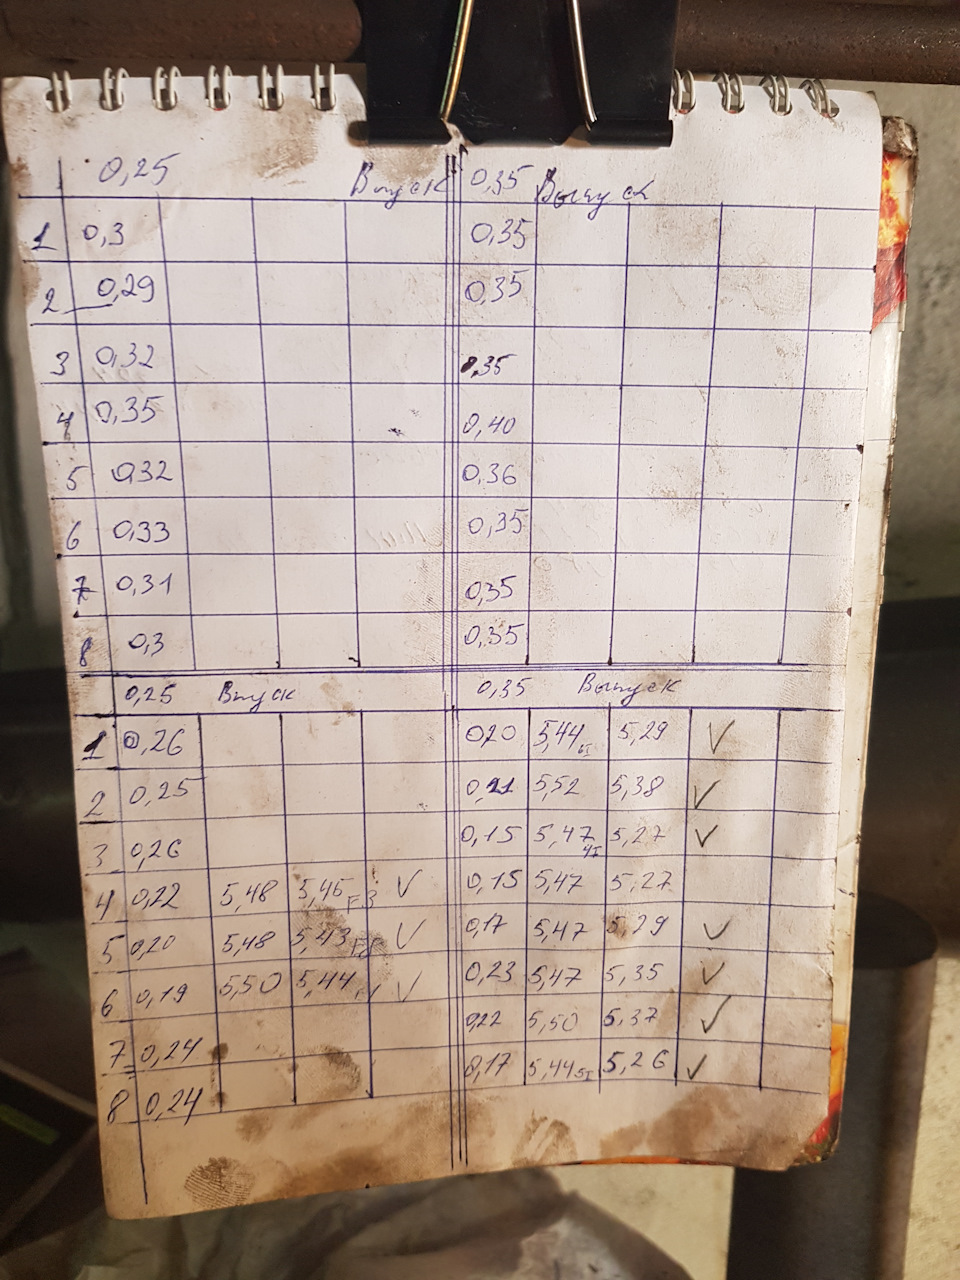 0,25 Впуск 0,35 Выпуск
1 0,3 0,35
2 0,29 0,35
3 0,32 0,35
4 0,35 0,40
5 0,32 0,36
6 0,33 0,35
7 0,31 0,35
8 0,3 0,35
0,25 Впуск 0,35 Выпуск
1 0,26 0,20 5,44 5,29 ✓
2 0,25 0,21 5,52 5,38 ✓
3 0,26 0,15 5,47 4I 5,27 ✓
4 0,22 5,48 5,45 F3 ✓ 0,15 5,47 5,27
5 0,20 5,48 5,43 F8 ✓ 0,17 5,47 5,29 ✓
6 0,19 5,50 5,44 ✓ 0,23 5,47 5,35 ✓
7 0,24 0,22 5,50 5,37 ✓
8 0,24 0,17 5,44 5I 5,26 ✓